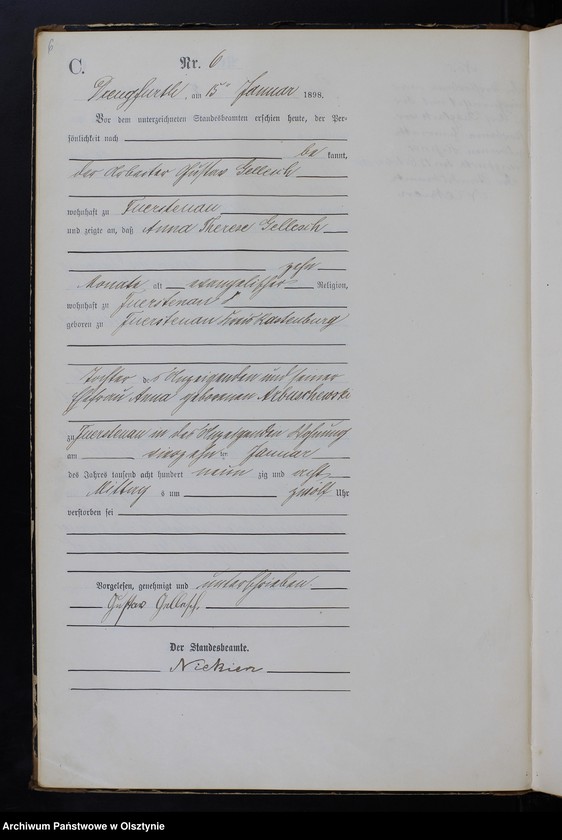 6
C.
Nr. 6
Drengfurth, am 15ten Januar 1898.
Vor dem unterzeichneten Standesbeamten erschien heute, der Per-
sönlichkeit nach
be kannt,
der Arbeiter Gustav Gellesch
wohnhaft zu Fuerstenau
und zeigte an, daß Anna Therese Gellesch
zehn
Monate alt evangelischer Religion,
wohnhaft zu Fuerstenau
geboren zu Fuerstenau Kreis Rastenburg
Tochter des Anzeigenden und seiner
Ehefrau Anna geborenen Arbuschewski
zu Fuerstenau in des Anzeigenden Wohnung
am vierzehnten Januar
des Jahres tausend acht hundert neun zig und acht
Mittags um zwölf Uhr
verstorben sei
Vorgelesen, genehmigt und unterschrieben
Gustav Gellesch.
Der Standesbeamte.
Archiwum Państwowe w Olsztynie